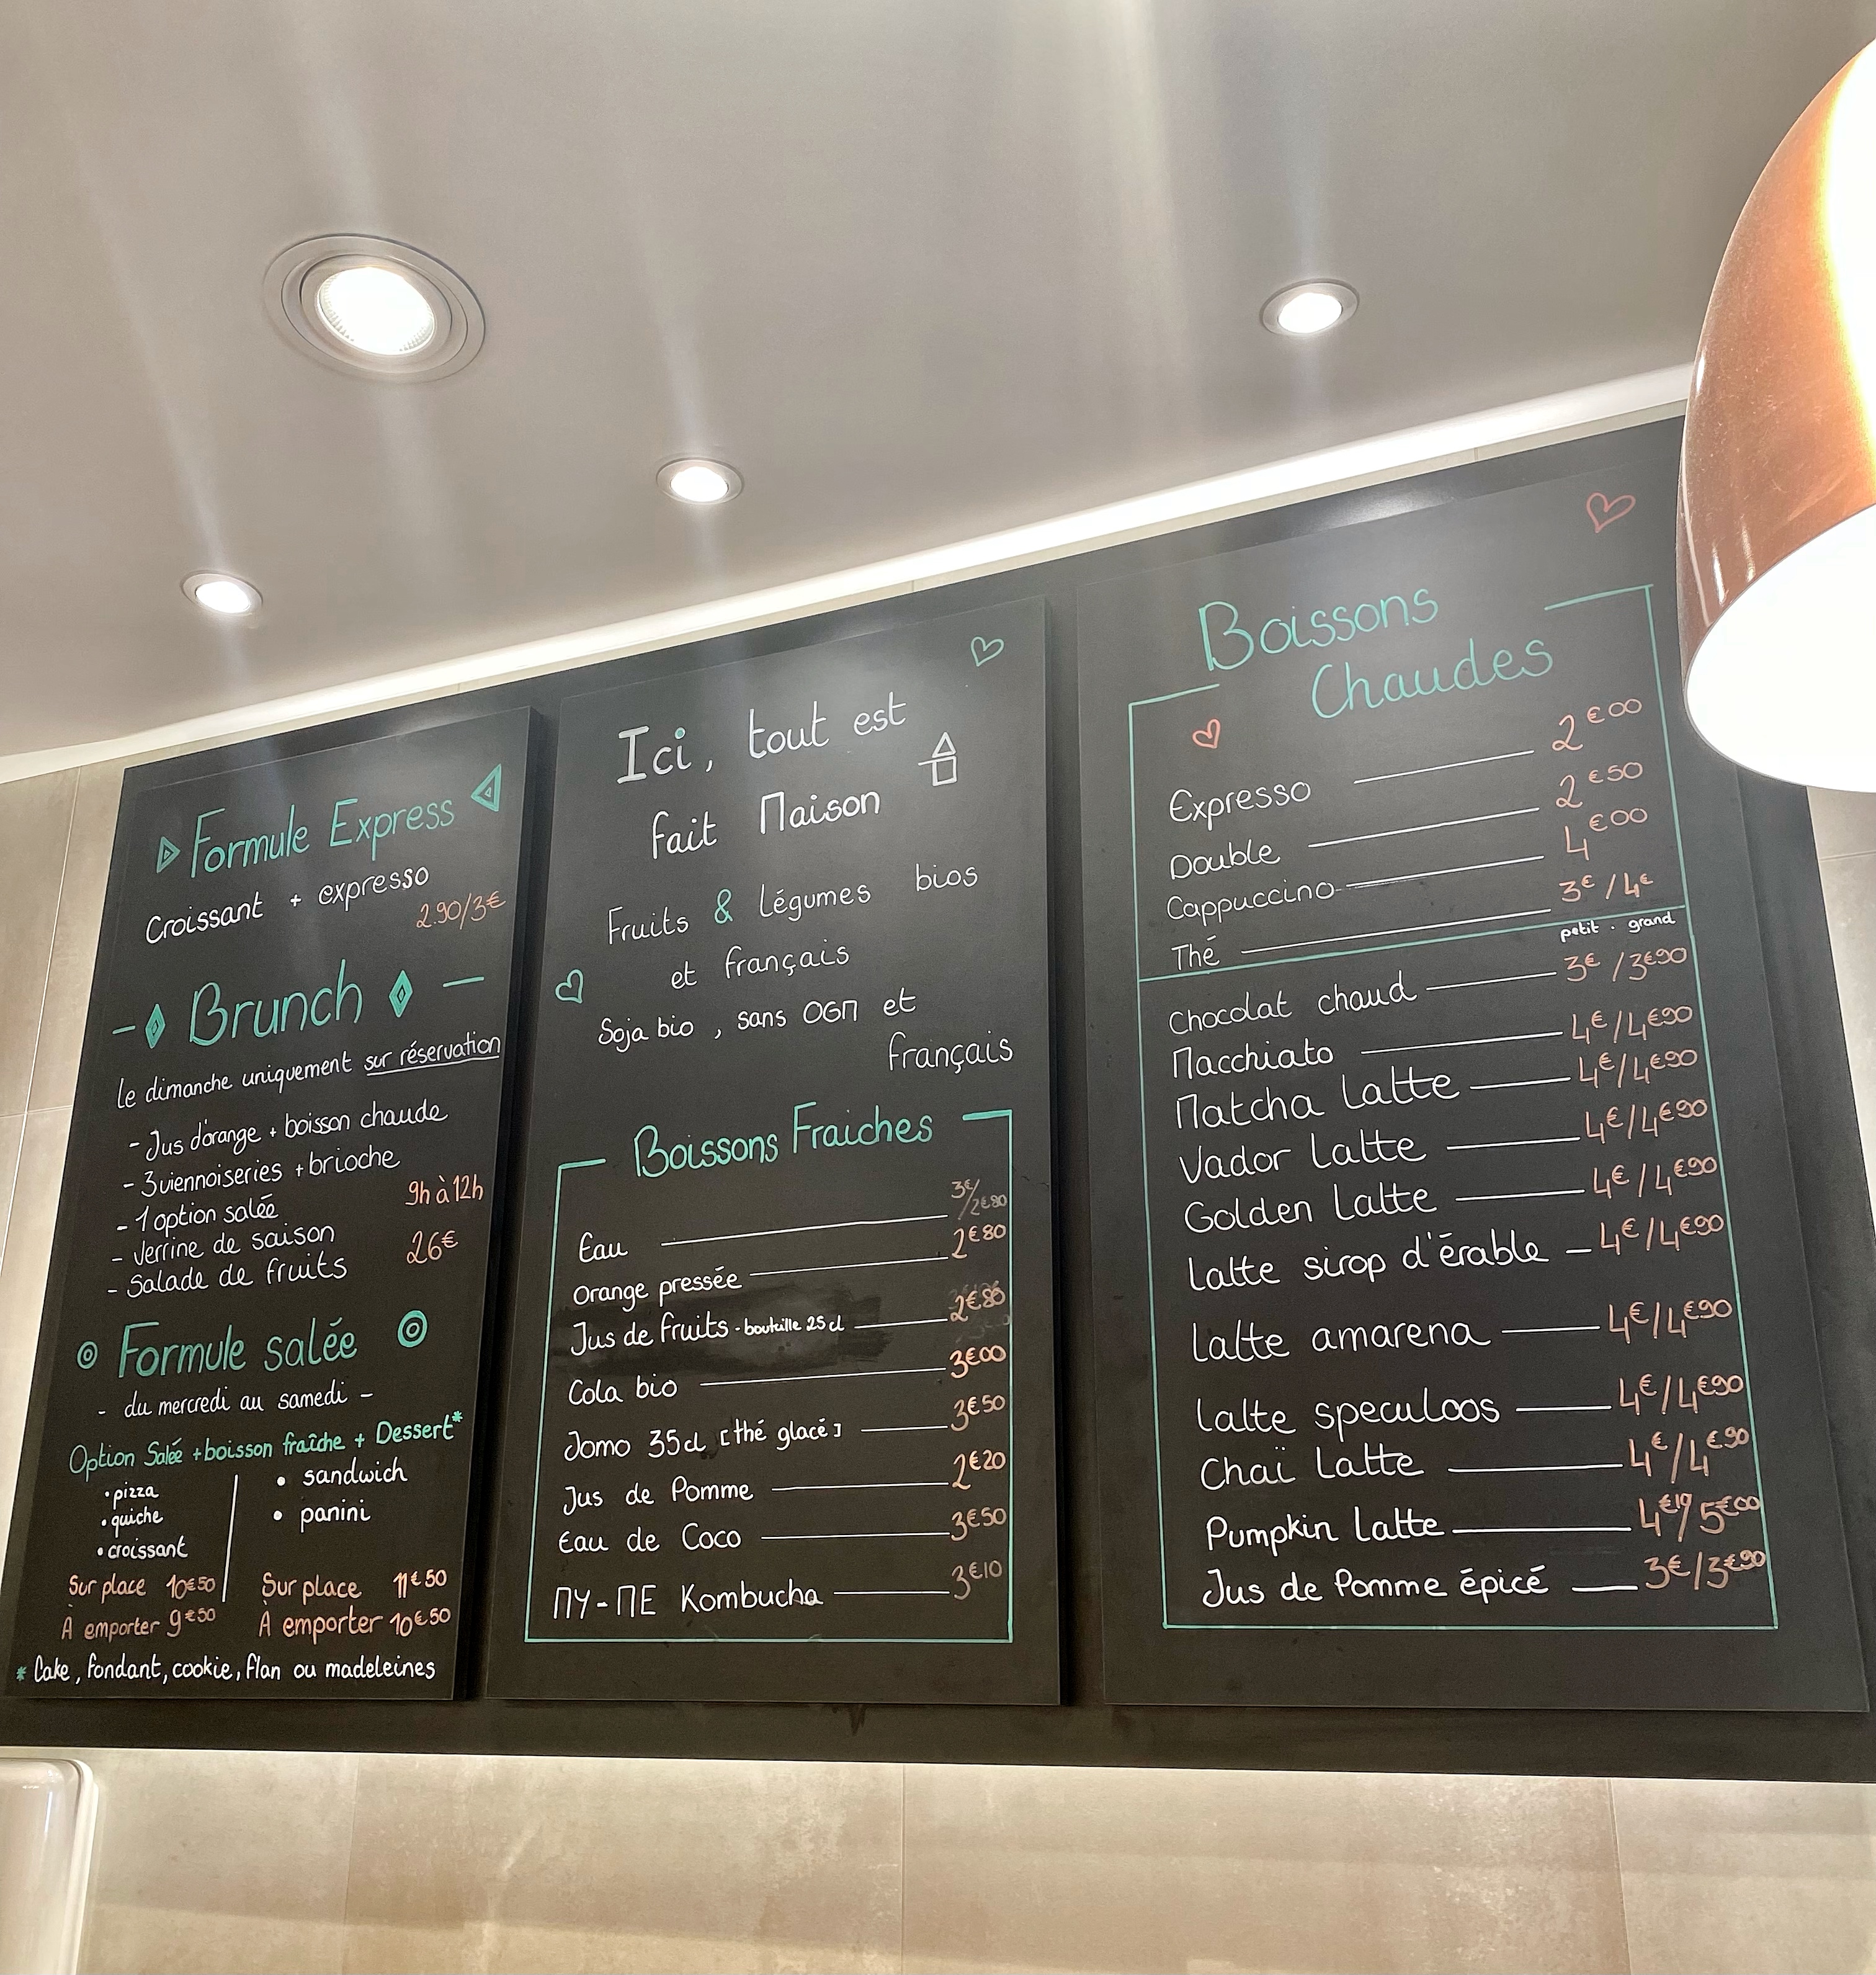 Formule Express
Croissant + expresso
2.90/3€
Brunch
le dimanche uniquement sur réservation
- Jus d'orange + boisson chaude
- 3 viennoiseries + brioche
- 1 option salée
9h à 12h
- Verrine de saison
- Salade de fruits
26€
Formule salée
- du mercredi au samedi -
Option Salée + boisson fraîche + Dessert*
• pizza
• quiche
• croissant
Sur place 10€50
À emporter 9€50
• sandwich
• panini
Sur place 11€50
À emporter 10€50
* Cake, fondant, cookie, flan ou madeleines
Ici, tout est
fait Maison
Fruits & légumes bios
et français
Soja bio, sans OGM et
français
Boissons Fraiches
Eau 3€/2€80
Orange pressée 2€80
Jus de fruits - bouteille 25cl 2€80
Cola bio 3€00
Jomo 35cl [thé glacé] 3€50
Jus de Pomme 2€20
Eau de Coco 3€50
MY-ME Kombucha 3€10
Boissons
Chaudes
Expresso 2€00
Double 2€50
Cappuccino 4€00
Thé 3€/4€
petit . grand
Chocolat chaud 3€/3€90
Macchiato 4€/4€90
Matcha Latte 4€/4€90
Vador Latte 4€/4€90
Golden Latte 4€/4€90
Latte sirop d'érable 4€/4€90
Latte amarena 4€/4€90
Latte speculoos 4€/4€90
Chaï Latte 4€/4€90
Pumpkin Latte 4€19/5€00
Jus de Pomme épicé 3€/3€90